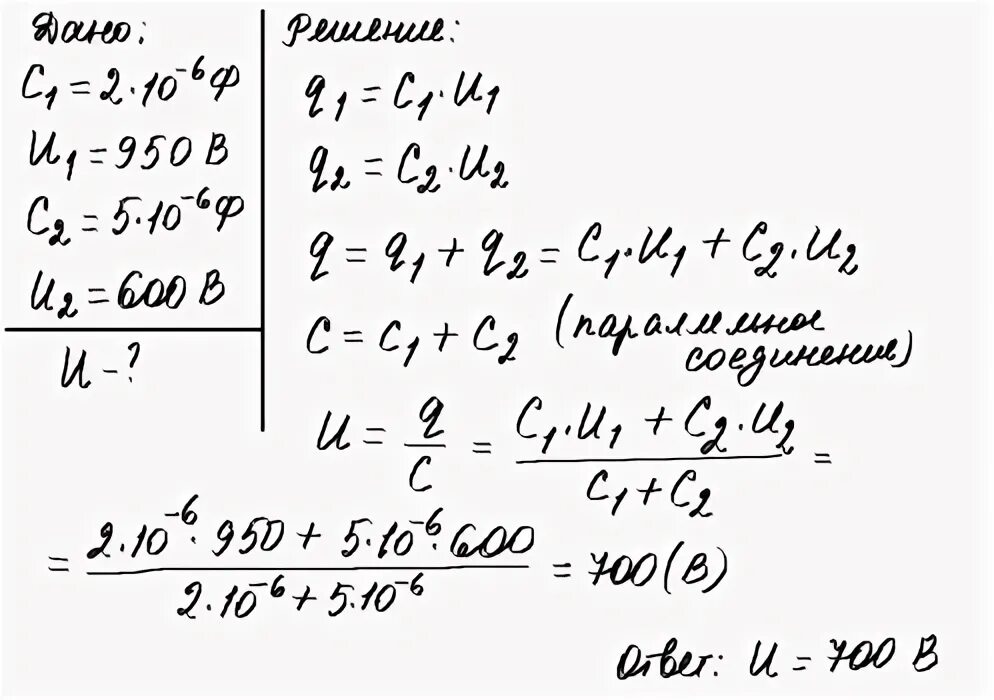 Дано:
C₁ = 2·10⁻⁶ Ф
U₁ = 950 В
C₂ = 5·10⁻⁶ Ф
U₂ = 600 В
U - ?
Решение:
q₁ = C₁·U₁
q₂ = C₂·U₂
q = q₁ + q₂ = C₁·U₁ + C₂·U₂
C = C₁ + C₂ (параллельное
соединение)
U = q/C = (C₁·U₁ + C₂·U₂)/(C₁ + C₂) =
= (2·10⁻⁶·950 + 5·10⁻⁶·600)/(2·10⁻⁶ + 5·10⁻⁶) = 700 (В)
Ответ: U = 700 В